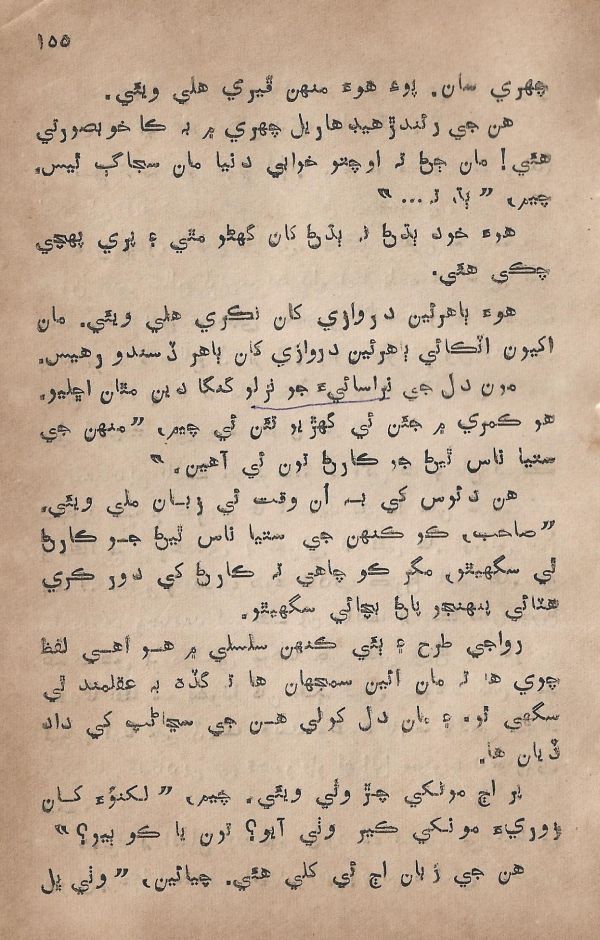 ١٥٥
چهري سان. پوءِ هوءَ منهن ڦيري هلي ويئي.
هن جي رئندڙ هيڊهاريل چهري ۾ به ڪا خوبصورتي
هئي! مان ڄڻ ته اوچتو خوابي دنيا مان سجاڳ ٿيس.
چيم، ”ٻڌ، ته...“
هوءَ خود ٻڌڻ نه ٻڌڻ کان گهڻو مٿي ۽ پري پهچي
چڪي هئي.
هوءَ ٻاهرئين دروازي کان نڪري هلي ويئي. مان
اکيون اٽڪائي ٻاهرئين دروازي کان ٻاهر ڏسندو رهيس.
مون دل جي نراسائيءَ جو نزلو گنگا دين مٿان اڇليو.
هو ڪمري ۾ جئن ئي گهڙيو تئن ئي چيم، ”منهن جي
ستيا ناس ٿيڻ جو ڪارڻ تون ئي آهين.“
هن دئوس کي به اُن وقت ئي زبان ملي ويئي.
”صاحب، ڪو ڪنهن جي ستيا ناس ٿيڻ جو ڪارڻ
ٿي سگهيٿو، مگر ڪو چاهي ته ڪارڻ کي دور ڪري
هٽائي پنهنجو پاڻ بچائي سگهيٿو.
رواجي طرح ۽ ٻئي ڪنهن سلسلي ۾ هو اهي لفظ
چوي ها ته مان ائين سمجهان ها ته گڏهه به عقلمند ٿي
سگهي ٿو. ۽ مان دل کولي هن جي سڃاڻپ کي داد
ڏيان ها.
پر اڄ مونکي چڙ وٺي ويئي. چيم، ”لکنؤءَ کان
زوريءَ مونکي ڪير وٺي آيو؟ تون يا ڪو ٻيو؟“
هن جي زبان اڄ ئي کلي هئي. چيائين، ”وٺي ڀل